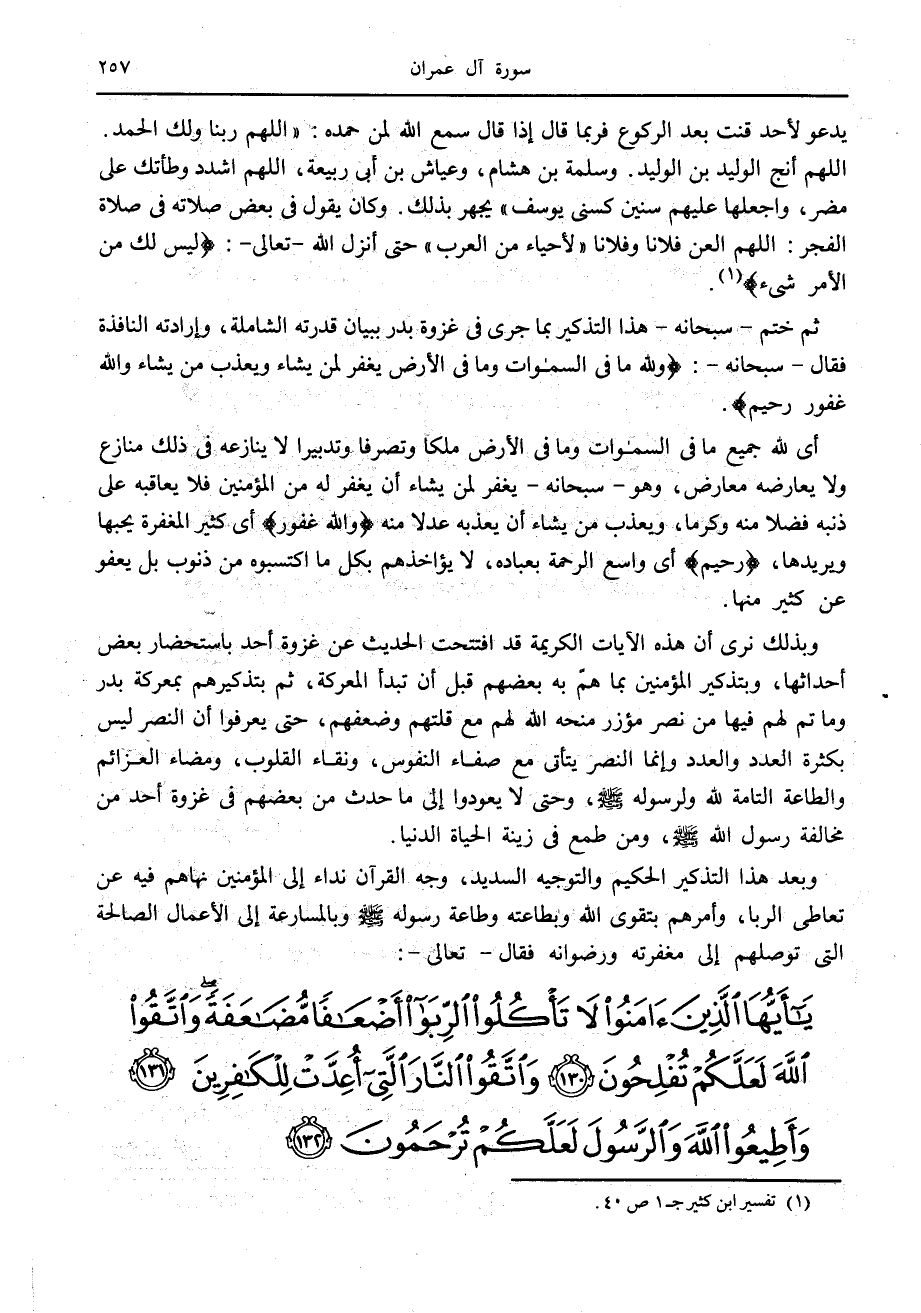 سورة آل عمران ٢٥٧
يدعو لأحد قنت بعد الركوع فربما قال إذا قال سمع الله لمن حمده : « اللهم ربنا ولك الحمد .
اللهم أنج الوليد بن الوليد . وسلمة بن هشام ، وعياش بن أبى ربيعة ، اللهم اشدد وطأتك على
مضر ، واجعلها عليهم سنين كسنى يوسف » يجهر بذلك . وكان يقول فى بعض صلاته فى صلاة
الفجر : اللهم العن فلانا وفلانا « لأحياء من العرب » حتى أنزل الله -تعالى- : ﴿ليس لك من
الأمر شىء﴾(١) .
ثم ختم - سبحانه - هذا التذكير بما جرى فى غزوة بدر ببيان قدرته الشاملة ، وإرادته النافذة
فقال - سبحانه - : ﴿ولله ما فى السمٰوات وما فى الأرض يغفر لمن يشاء ويعذب من يشاء والله
غفور رحيم﴾ .
أى لله جميع ما فى السمٰوات وما فى الأرض ملكا وتصرفا وتدبيرا لا ينازعه فى ذلك منازع
ولا يعارضه معارض ، وهو - سبحانه - يغفر لمن يشاء أن يغفر له من المؤمنين فلا يعاقبه على
ذنبه فضلا منه وكرما ، ويعذب من يشاء أن يعذبه عدلا منه ﴿والله غفور﴾ أى كثير المغفرة يحبها
ويريدها ، ﴿رحيم﴾ أى واسع الرحمة بعباده ، لا يؤاخذهم بكل ما اكتسبوه من ذنوب بل يعفو
عن كثير منها .
وبذلك نرى أن هذه الآيات الكريمة قد افتتحت الحديث عن غزوة أحد باستحضار بعض
أحداثها ، وبتذكير المؤمنين بما همّ به بعضهم قبل أن تبدأ المعركة ، ثم بتذكيرهم بمعركة بدر
وما تم لهم فيها من نصر مؤزر منحه الله لهم مع قلتهم وضعفهم ، حتى يعرفوا أن النصر ليس
بكثرة العدد والعدد وإنما النصر يتأتى مع صفاء النفوس ، ونقاء القلوب ، ومضاء العزائم
والطاعة التامة لله ولرسوله ﷺ ، وحتى لا يعودوا إلى ما حدث من بعضهم فى غزوة أحد من
مخالفة رسول الله ﷺ ، ومن طمع فى زينة الحياة الدنيا .
وبعد هذا التذكير الحكيم والتوجيه السديد ، وجه القرآن نداء إلى المؤمنين نهاهم فيه عن
تعاطى الربا ، وأمرهم بتقوى الله وبطاعته وطاعة رسوله ﷺ وبالمسارعة إلى الأعمال الصالحة
التى توصلهم إلى مغفرته ورضوانه فقال - تعالى - :
يَٰٓأَيُّهَا ٱلَّذِينَ ءَامَنُوا۟ لَا تَأْكُلُوا۟ ٱلرِّبَوٰٓا۟ أَضْعَٰفًا مُّضَٰعَفَةً ۖ وَٱتَّقُوا۟
ٱللَّهَ لَعَلَّكُمْ تُفْلِحُونَ ١٣٠ وَٱتَّقُوا۟ ٱلنَّارَ ٱلَّتِىٓ أُعِدَّتْ لِلْكَٰفِرِينَ ١٣١
وَأَطِيعُوا۟ ٱللَّهَ وَٱلرَّسُولَ لَعَلَّكُمْ تُرْحَمُونَ ١٣٢
(١) تفسير ابن كثير جـ ١ ص ٤٠ .